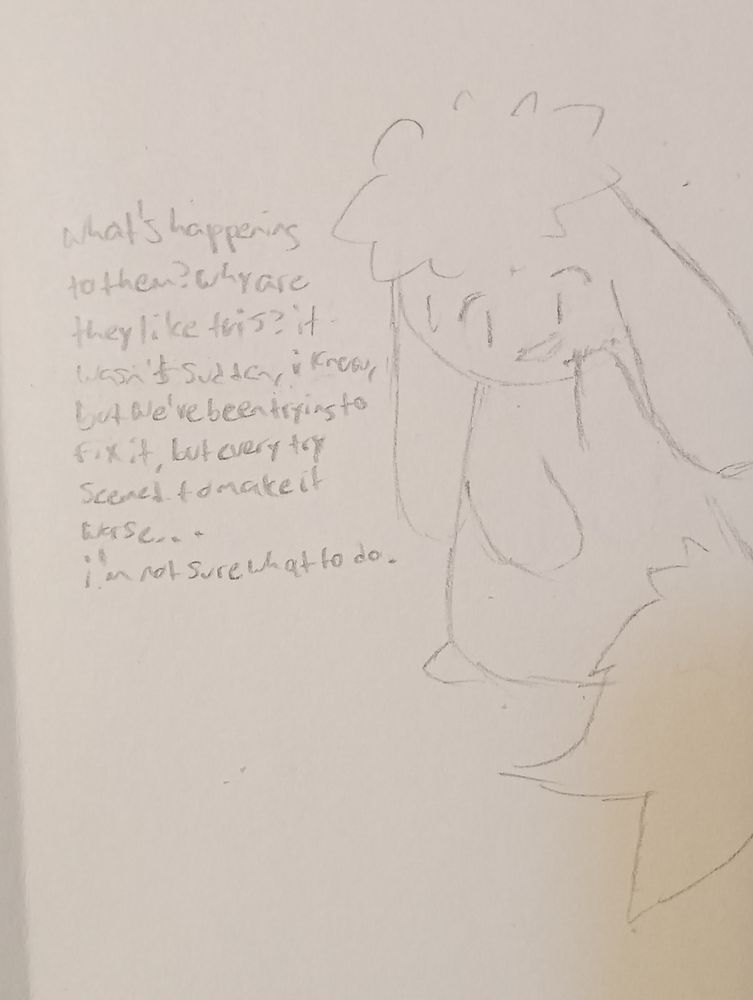 what's happening
to them? why are
they like this? it
wasn't sudden, i know,
but we've been trying to
fix it, but every try
seemed to make it
worse...
i'm not sure what to do.